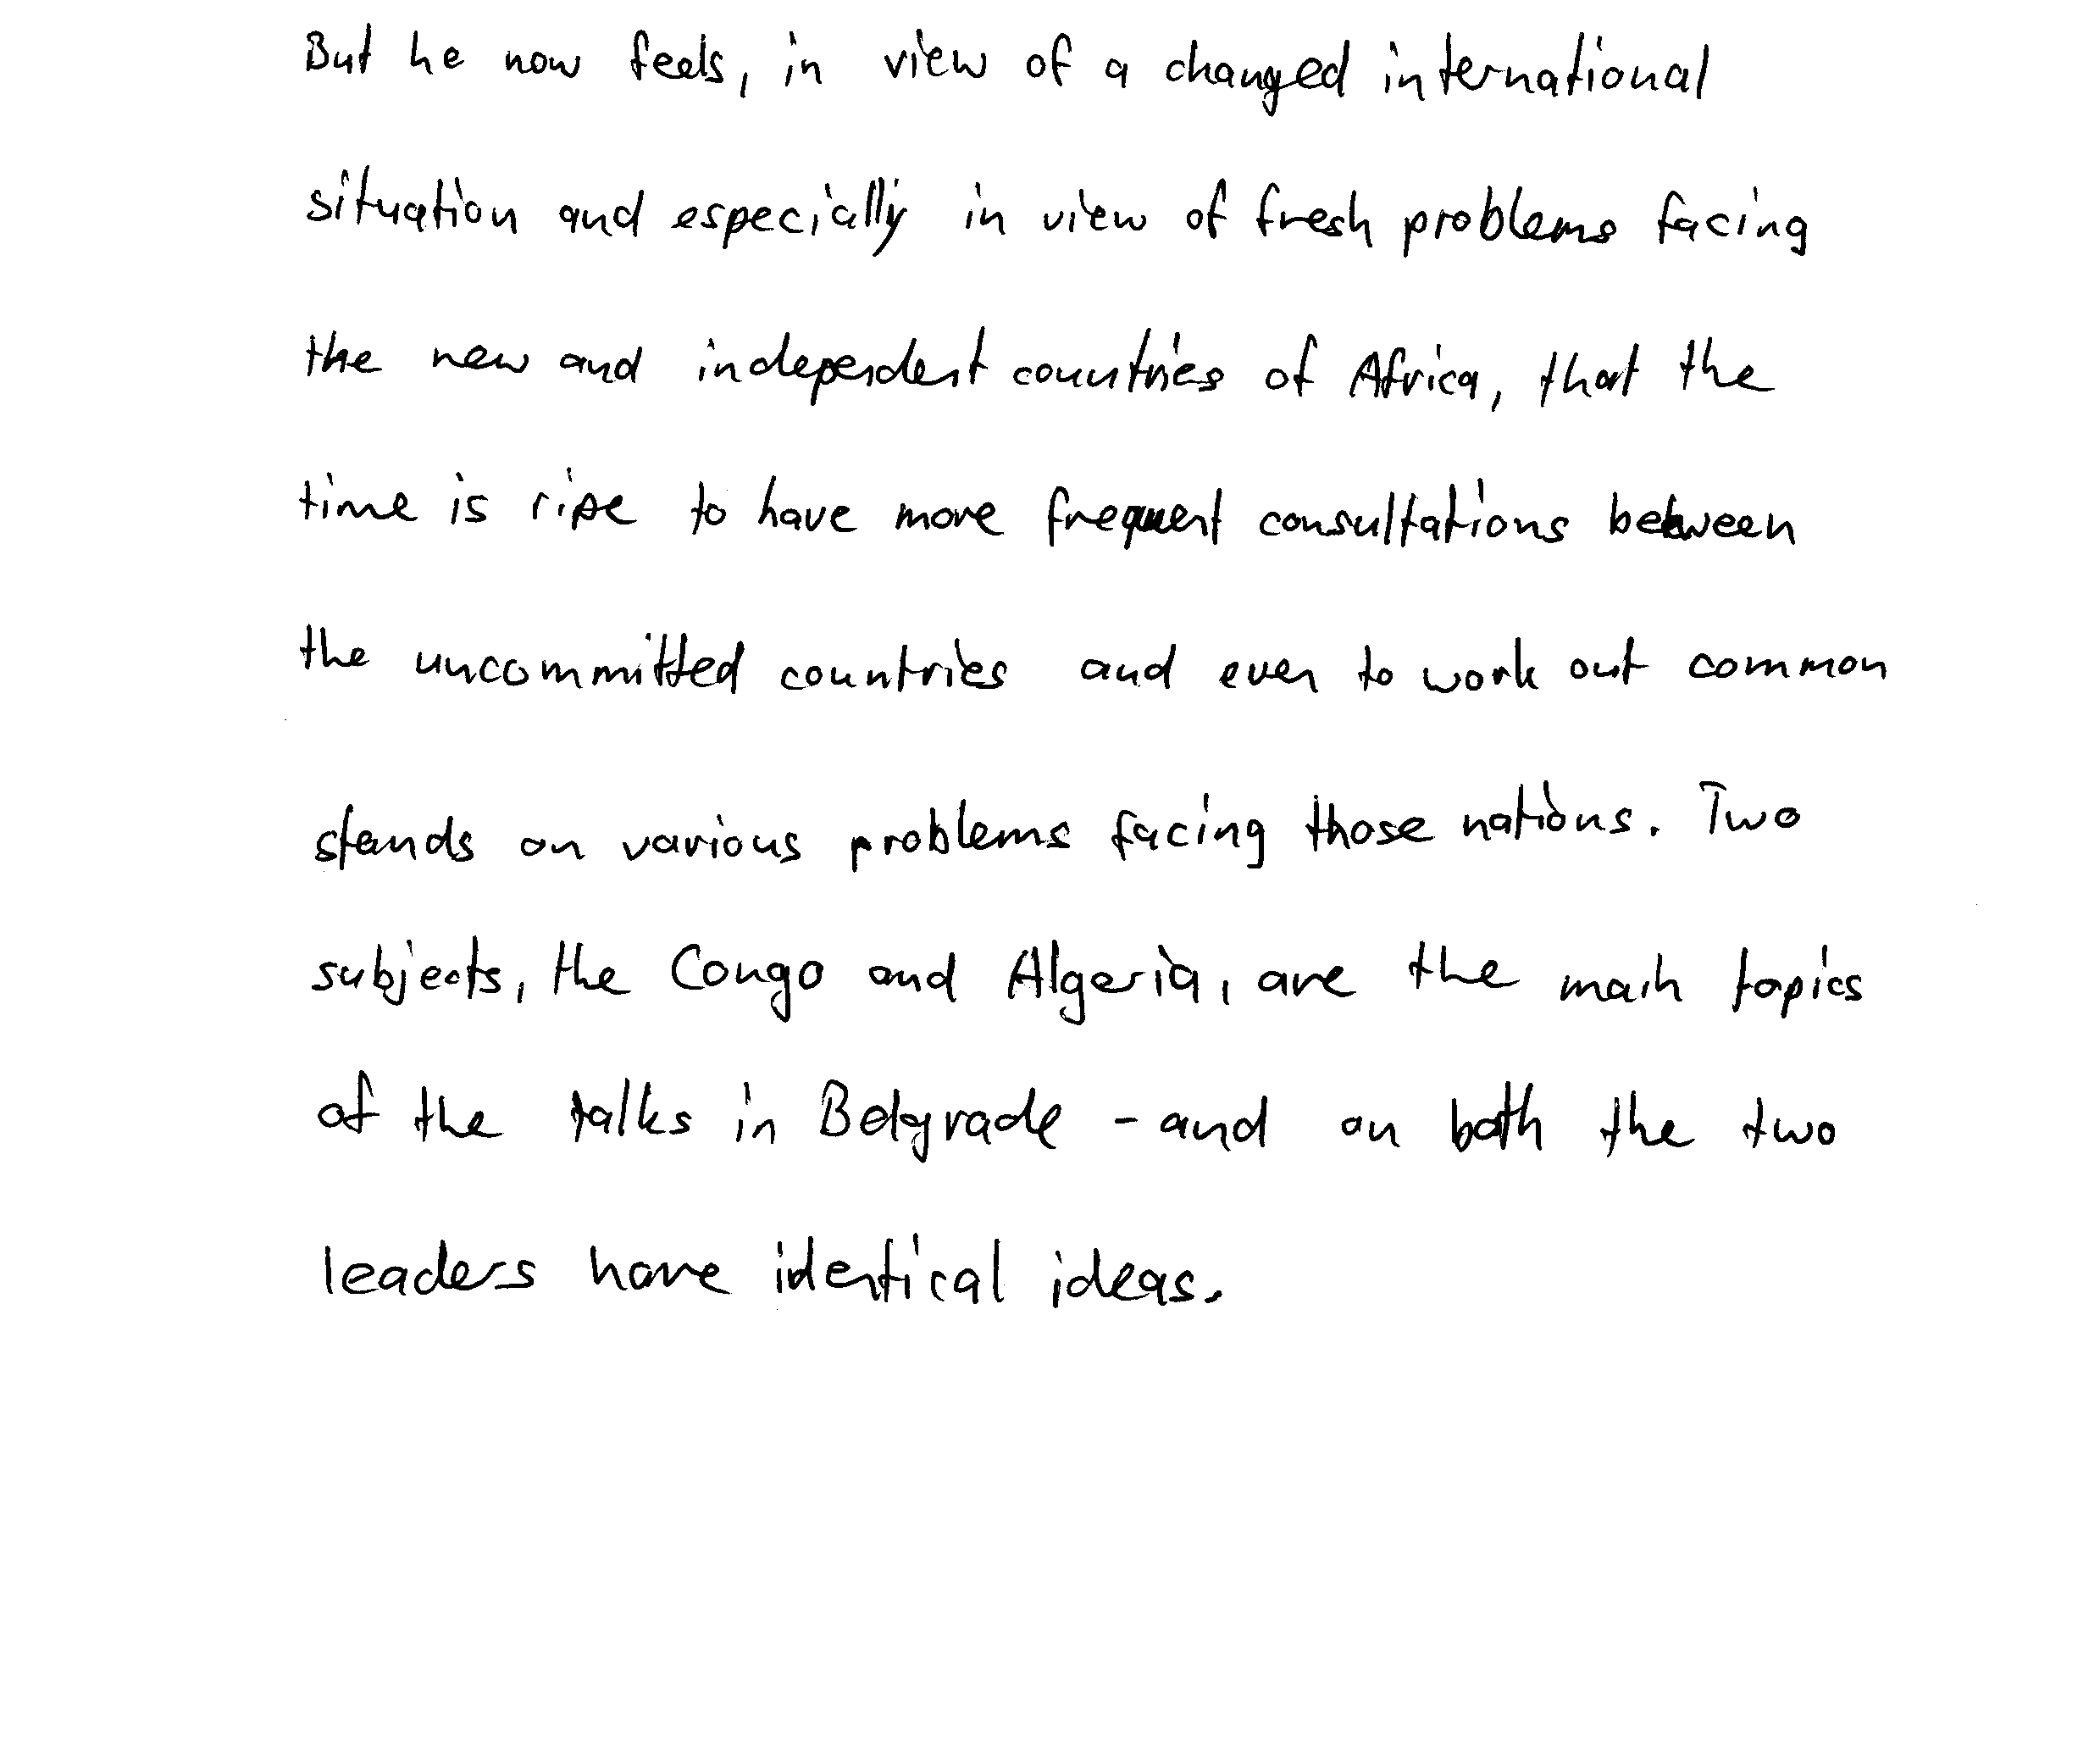 But he now feels, in view of a changed international
situation and especially in view of fresh problems facing
the new and independent countries of Africa, that the
time is ripe to have more frequent consultations between
the uncommitted countries and even to work out common
stands on various problems facing those nations. Two
subjects, the Congo and Algeria, are the main topics
of the talks in Belgrade - and on both the two
leaders have identical ideas.